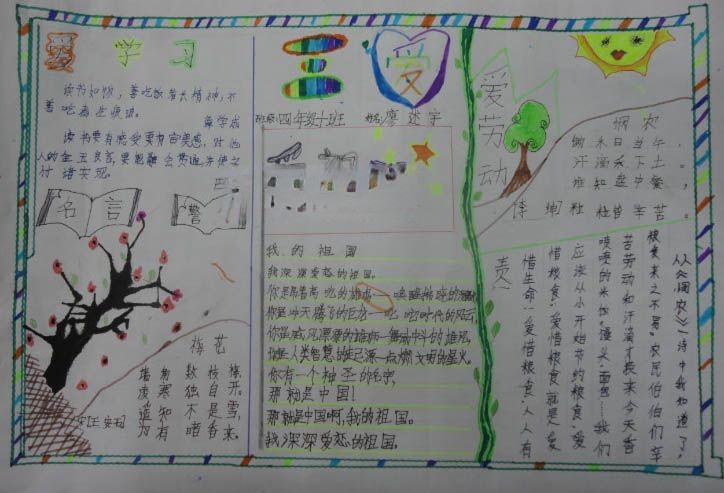 爱学习
读书如饭，善吃饭者长精神，不
善吃者生疾病。
章学成
读书要有感受要有审美感，对他
人的金玉良言，要能融会贯通，并使之
付诸实现。
名言
警
梅花
墙角数枝梅，
凌寒独自开。
遥知不是雪，
为有暗香来。
宋王安石
三爱
班级:四年级十班
姓名:廖述宇
我的祖国
我深深爱恋的祖国。
你是昂首高吭的雄鸡——唤醒拂晓的
你是冲天腾飞的巨龙——叱咤时代的风云，
你是威风凛凛的雄狮——舞动中华的雄风，
你是人类智慧的起源——点燃文明的星火。
你有一个神圣的名字，
那就是中国！
那就是中国啊，我的祖国。
我深深爱恋的祖国。
爱劳动
悯农
锄禾日当午，
汗滴禾下土。
谁知盘中餐，
粒粒皆辛苦。
从《悯农》一诗中我知道了，
粮食来之不易，农民伯伯们辛
苦劳动和汗滴才换来今天香
喷喷的米饭、馒头、面包……我们
应该从小开始节约粮食，爱
惜粮食，爱惜粮食就是爱
惜生命，爱惜粮食，人人有
责